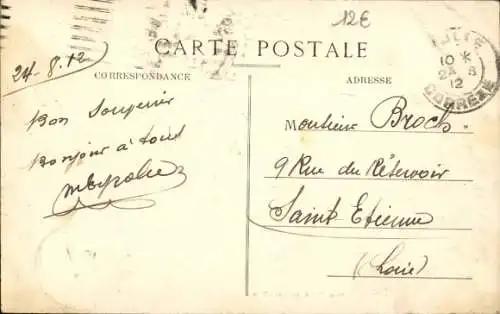 12€
CARTE POSTALE
CORRESPONDANCE
ADRESSE
24-8.12
Bon Souvenir
Bonjour à tous
TULLE
10 *
24 8
12
CORRÈZE
Monsieur Broch
9 Rue du Réservoir
Saint Etienne
(Loire)